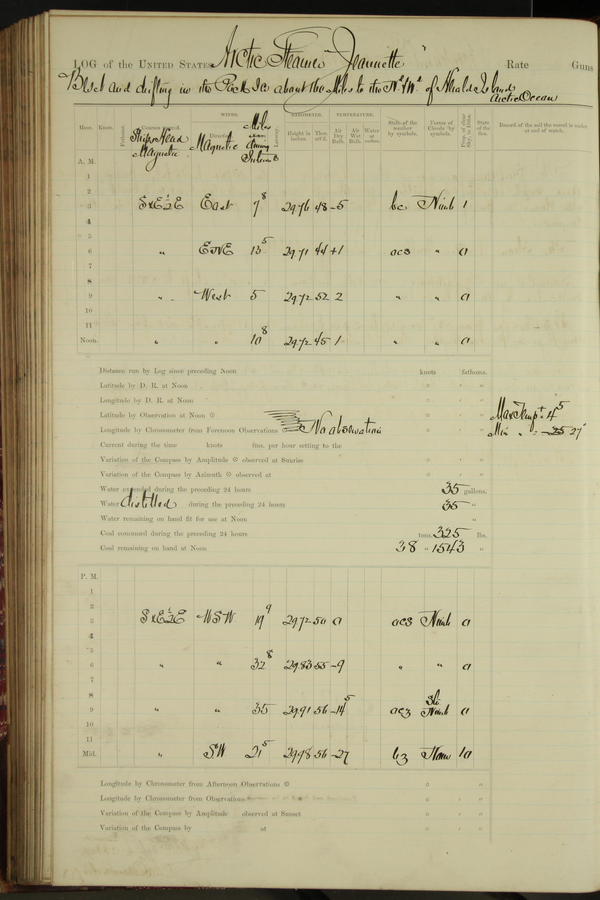 LOG of the UNITED STATES Arctic Steamer Jeannette Rate Guns
and drifting in the Pack Ice about the Miles to the N & W of Herald Island
Arctic Ocean
WINDS. BAROMETER. TEMPERATURE.
Hour. Knots. Fathoms. Ship's Head Magnetic Magnetic Miles Leeway. Height in inches. Ther. att'd. Air Dry Bulb. Air Wet Bulb. Water at surface. State of the weather by symbols. Forms of Clouds by symbols. Prop. of clear sky, in 10ths. State of the Sea. Record of the sail the vessel is under at end of watch.
A. M.
1
2
3 SxE½E East 7 8 29.76 48 -5 bc Nimb 1
4
5
6 " ENE 13 5 29.71 44 +1 ocs " 0
7
8
9 " West 5 29.72 52 2 " " 0
10
11
Noon. " " 10 8 29.72 45 1 " " 0
Distance run by Log since preceding Noon knots fathoms.
Latitude by D. R. at Noon
Longitude by D. R. at Noon
Latitude by Observation at Noon Max Temp + 4 5
Longitude by Chronometer from Forenoon Observations No observations Min " - 27
Current during the time knots fms. per hour setting to the
Variation of the Compass by Amplitude observed at Sunrise
Variation of the Compass by Azimuth observed at
Water expended during the preceding 24 hours 35 gallons.
Water distilled during the preceding 24 hours 35 "
Water remaining on hand fit for use at Noon "
Coal consumed during the preceding 24 hours tons. 325 lbs.
Coal remaining on hand at Noon 38 " 1543 "
P. M.
1
2
3 SxE½E WSW 19 9 29.72 50 0 ocs Nimb 0
4
5
6 " " 32 8 29.83 55 -9 " " 0
7
8
9 " " 35 29.91 56 -14 5 ocz Str Nimb 0
10
11
Mid. " SW 21 5 29.98 56 -27 bz None 10
Longitude by Chronometer from Afternoon Observations
Longitude by Chronometer from Observations
Variation of the Compass by Amplitude observed at Sunset
Variation of the Compass by at